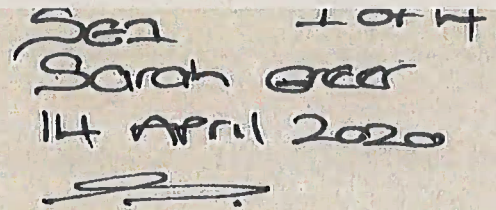 SE1 1 of 4
Sarah Greer
14 April 2020